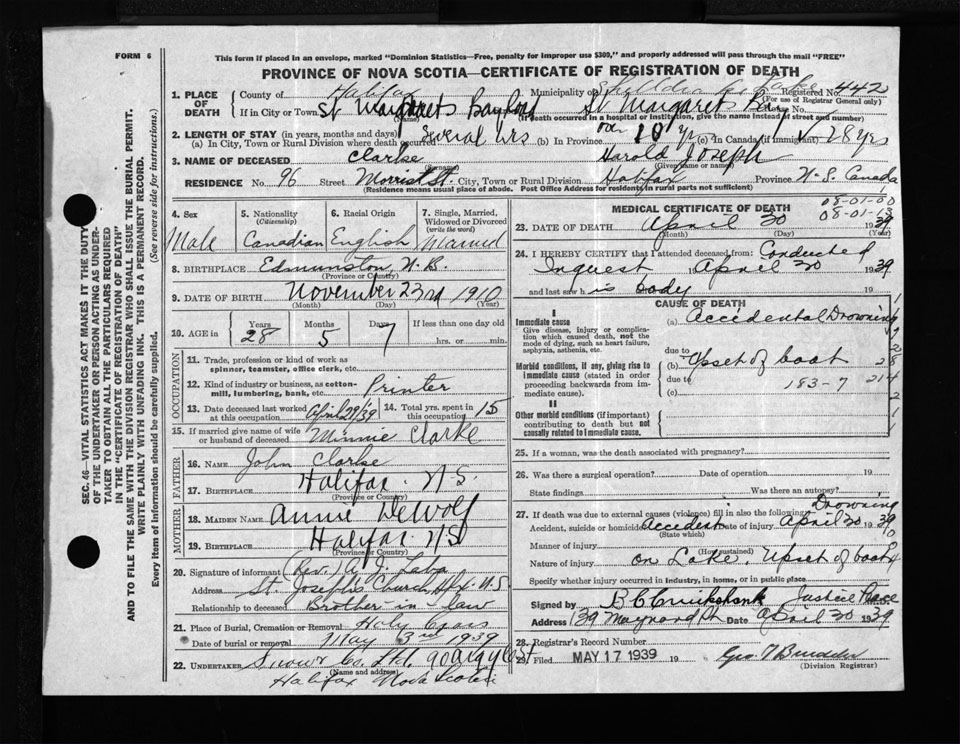 FORM 6
This form to be placed in an envelope, marked "Dominion Statistics—Free, penalty for improper use $300," and properly addressed will pass through the mail "FREE"
PROVINCE OF NOVA SCOTIA—CERTIFICATE OF REGISTRATION OF DEATH
1. PLACE OF DEATH
County of Halifax Municipality of Registered No. 442
(For use of Registrar General only)
If in City or Town St Margarets Bay Road St Margarets Bay No.
(Name) (If death occurred in a hospital or institution, give the name instead of street and number)
2. LENGTH OF STAY (in years, months and days)
(a) In City, Town or Rural Division where death occurred Several Yrs (b) In Province over 10 yr (c) In Canada (if immigrant) 28 yrs
3. NAME OF DECEASED Clarke Harold Joseph
(Surname) (Given name or names)
RESIDENCE No. 96 Street Morris St. City, Town or Rural Division Halifax Province N-S. Canada
(Residence means usual place of abode. Post Office Address for residents in rural parts not sufficient)
4. Sex
Male
5. Nationality
(Citizenship)
Canadian
6. Racial Origin
English
7. Single, Married, Widowed or Divorced
(write the word)
Married
8. BIRTHPLACE Edmunston, N.B.
(Province or Country)
9. DATE OF BIRTH November 23rd 1910
(Month) (Day) (Year)
10. AGE in
Years Months Days If less than one day old
28 5 7 hrs. or min.
OCCUPATION
11. Trade, profession or kind of work as spinner, teamster, office clerk, etc.
12. Kind of industry or business, as cotton-mill, lumbering, bank, etc. Printer
13. Date deceased last worked at this occupation April 29/39 14. Total yrs. spent in this occupation 15
15. If married give name of wife or husband of deceased Minnie Clarke
FATHER
16. Name John Clarke
17. BIRTHPLACE Halifax N-S.
(Province or Country)
MOTHER
18. MAIDEN NAME Annie DeWolf
19. BIRTHPLACE Halifax NS
(Province or Country)
20. Signature of informant (Rev.) A. J.
Address St. Joseph's Church N.S.
Relationship to deceased Brother-in-law
21. Place of Burial, Cremation or Removal Holy Cross
Date of burial or removal May 3rd 1939
22. UNDERTAKER Snow & Co. Ltd. 90 Argyle St
(Name and address)
Halifax Nova Scotia
MEDICAL CERTIFICATE OF DEATH
08-01-00
08-01-13
23. DATE OF DEATH April 30 1939
(Month) (Day) (Year)
24. I HEREBY CERTIFY that I attended deceased from: Conducted
Inquest April 30 1939
and last saw his body 19
CAUSE OF DEATH
I
Immediate cause
Give disease, injury or complication which caused death, not the mode of dying, such as heart failure, asphyxia, asthenia, etc.
(a) Accidental Drowning
due to
Morbid conditions, if any, giving rise to immediate cause (stated in order proceeding backwards from immediate cause).
(b) Upset of boat
due to 183-7
(c)
II
Other morbid conditions (if important) contributing to death but not causally related to immediate cause.
25. If a woman, was the death associated with pregnancy?
26. Was there a surgical operation? Date of operation. 19
State findings Was there an autopsy?
27. If death was due to external causes (violence) fill in also the following: Drowning
Accident, suicide or homicide Accident Date of injury April 30 1939
(State which)
Manner of injury
(How sustained)
Nature of injury on Lake, Upset of boat
Specify whether injury occurred in industry, in home, or in public place
Signed by B C Cruikshank Justice Peace
Address 139 Maynard St Date April 30 1939
28. Registrar's Record Number
29. Filed MAY 17 1939 19
(Division Registrar)
SEC. 46—VITAL STATISTICS ACT MAKES IT THE DUTY OF THE UNDERTAKER OR PERSON ACTING AS UNDERTAKER TO OBTAIN ALL THE PARTICULARS REQUIRED IN THE "CERTIFICATE OF REGISTRATION OF DEATH" AND TO FILE THE SAME WITH THE DIVISION REGISTRAR WHO SHALL ISSUE THE BURIAL PERMIT.
WRITE PLAINLY WITH UNFADING INK. THIS IS A PERMANENT RECORD.
Every item of information should be carefully supplied. (See reverse side for instructions.)